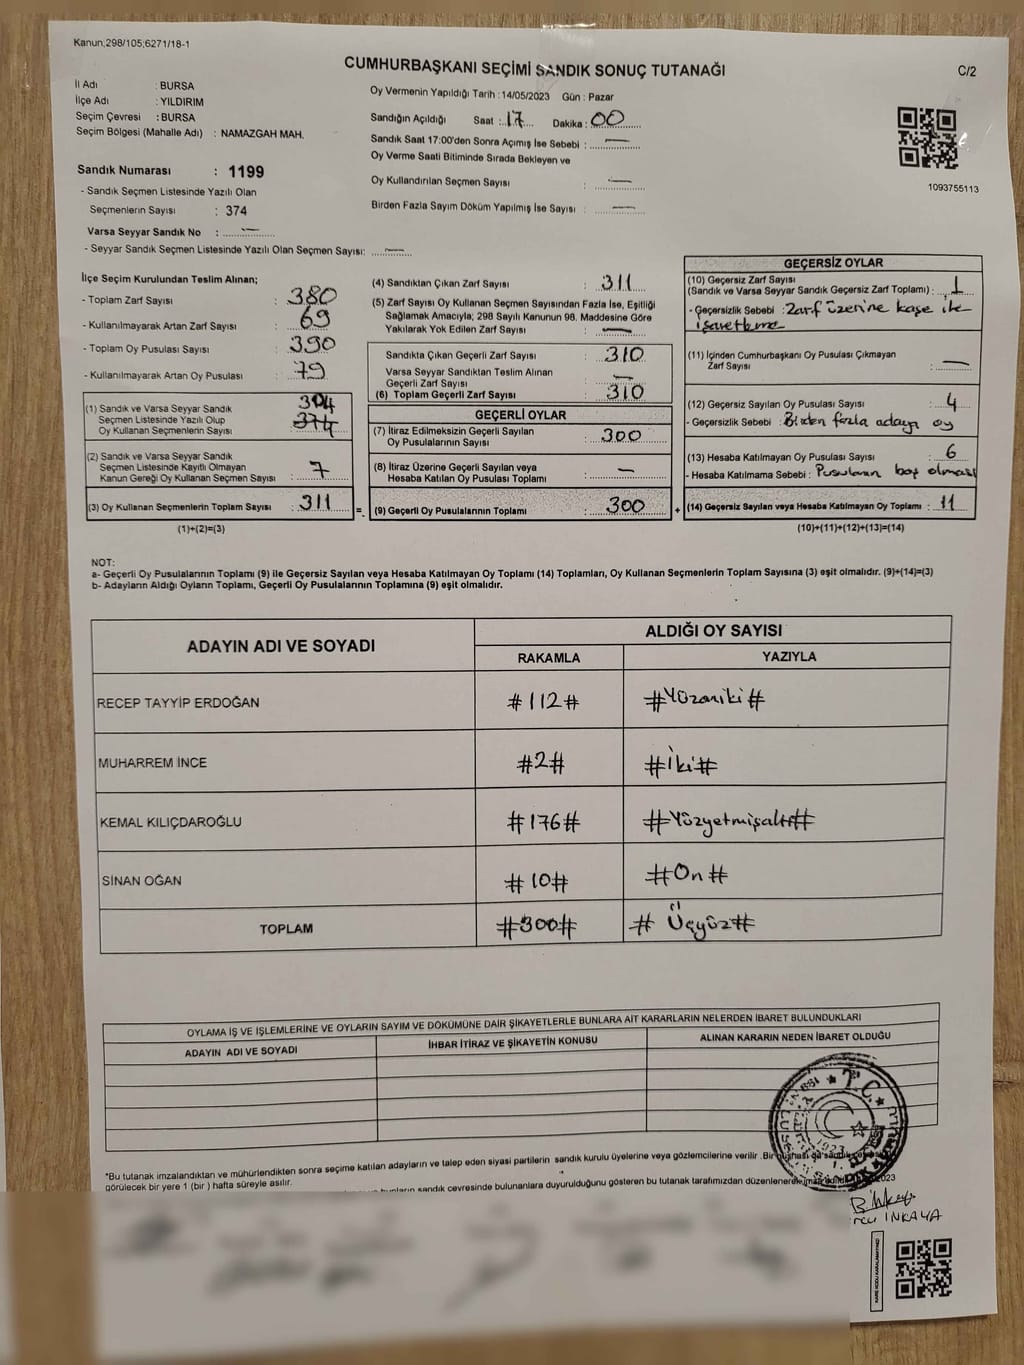 Kanun;298/105;6271/18-1
CUMHURBAŞKANI SEÇİMİ SANDIK SONUÇ TUTANAĞI
C/2
İl Adı : BURSA
İlçe Adı : YILDIRIM
Seçim Çevresi : BURSA
Seçim Bölgesi (Mahalle Adı) : NAMAZGAH MAH.
Sandık Numarası : 1199
- Sandık Seçmen Listesinde Yazılı Olan
Seçmenlerin Sayısı : 374
Varsa Seyyar Sandık No : —
- Seyyar Sandık Seçmen Listesinde Yazılı Olan Seçmen Sayısı: —
Oy Vermenin Yapıldığı Tarih : 14/05/2023 Gün : Pazar
Sandığın Açıldığı Saat : 17 Dakika : 00
Sandık Saat 17:00'den Sonra Açımış İse Sebebi : —
Oy Verme Saati Bitiminde Sırada Bekleyen ve
Oy Kullandırılan Seçmen Sayısı : —
Birden Fazla Sayım Döküm Yapılmış İse Sayısı : —
1093755113
İlçe Seçim Kurulundan Teslim Alınan;
- Toplam Zarf Sayısı : 380
- Kullanılmayarak Artan Zarf Sayısı : 69
- Toplam Oy Pusulası Sayısı : 390
- Kullanılmayarak Artan Oy Pusulası : 79
(1) Sandık ve Varsa Seyyar Sandık 304
Seçmen Listesinde Yazılı Olup 374
Oy Kullanan Seçmenlerin Sayısı
(2) Sandık ve Varsa Seyyar Sandık
Seçmen Listesinde Kayıtlı Olmayan
Kanun Gereği Oy Kullanan Seçmen Sayısı : 7
(3) Oy Kullanan Seçmenlerin Toplam Sayısı : 311
(1)+(2)=(3)
(4) Sandıktan Çıkan Zarf Sayısı : 311
(5) Zarf Sayısı Oy Kullanan Seçmen Sayısından Fazla İse, Eşitliği
Sağlamak Amacıyla; 298 Sayılı Kanunun 98. Maddesine Göre
Yakılarak Yok Edilen Zarf Sayısı : —
Sandıkta Çıkan Geçerli Zarf Sayısı : 310
Varsa Seyyar Sandıktan Teslim Alınan
Geçerli Zarf Sayısı : —
(6) Toplam Geçerli Zarf Sayısı : 310
GEÇERLİ OYLAR
(7) İtiraz Edilmeksizin Geçerli Sayılan
Oy Pusulalarının Sayısı : 300
(8) İtiraz Üzerine Geçerli Sayılan veya
Hesaba Katılan Oy Pusulası Toplamı : —
(9) Geçerli Oy Pusulalarının Toplamı : 300
GEÇERSİZ OYLAR
(10) Geçersiz Zarf Sayısı
(Sandık ve Varsa Seyyar Sandık Geçersiz Zarf Toplamı) : 1
- Geçersizlik Sebebi : Zarf üzerine kaşe ile
işaretleme
(11) İçinden Cumhurbaşkanı Oy Pusulası Çıkmayan
Zarf Sayısı : —
(12) Geçersiz Sayılan Oy Pusulası Sayısı : 4
- Geçersizlik Sebebi : Birden fazla adaya oy
(13) Hesaba Katılmayan Oy Pusulası Sayısı : 6
- Hesaba Katılmama Sebebi : Pusulanın boş olması
(14) Geçersiz Sayılan veya Hesaba Katılmayan Oy Toplamı : 11
(10)+(11)+(12)+(13)=(14)
NOT:
a- Geçerli Oy Pusulalarının Toplamı (9) ile Geçersiz Sayılan veya Hesaba Katılmayan Oy Toplamı (14) Toplamları, Oy Kullanan Seçmenlerin Toplam Sayısına (3) eşit olmalıdır. (9)+(14)=(3)
b- Adayların Aldığı Oyların Toplamı, Geçerli Oy Pusulalarının Toplamına (9) eşit olmalıdır.
ADAYIN ADI VE SOYADI
ALDIĞI OY SAYISI
RAKAMLA YAZIYLA
RECEP TAYYİP ERDOĞAN #112# #Yüzoniki#
MUHARREM İNCE #2# #İki#
KEMAL KILIÇDAROĞLU #176# #Yüzyetmişaltı#
SİNAN OĞAN #10# #On#
TOPLAM #300# # Üçyüz#
OYLAMA İŞ VE İŞLEMLERİNE VE OYLARIN SAYIM VE DÖKÜMÜNE DAİR ŞİKAYETLERLE BUNLARA AİT KARARLARIN NELERDEN İBARET BULUNDUKLARI
ADAYIN ADI VE SOYADI İHBAR İTİRAZ VE ŞİKAYETİN KONUSU ALINAN KARARIN NEDEN İBARET OLDUĞU
T.C.
1923
*Bu tutanak imzalandıktan ve mühürlendikten sonra seçime katılan adayların ve talep eden siyasi partilerin sandık kurulu üyelerine veya gözlemcilerine verilir. Bir
görülecek bir yere 1 (bir) hafta süreyle asılır.
bunların sandık çevresinde bulunanlara duyurulduğunu gösteren bu tutanak tarafımızdan düzenlenerek
INKAYA
KARE KODU KARALAMAYINIZ!